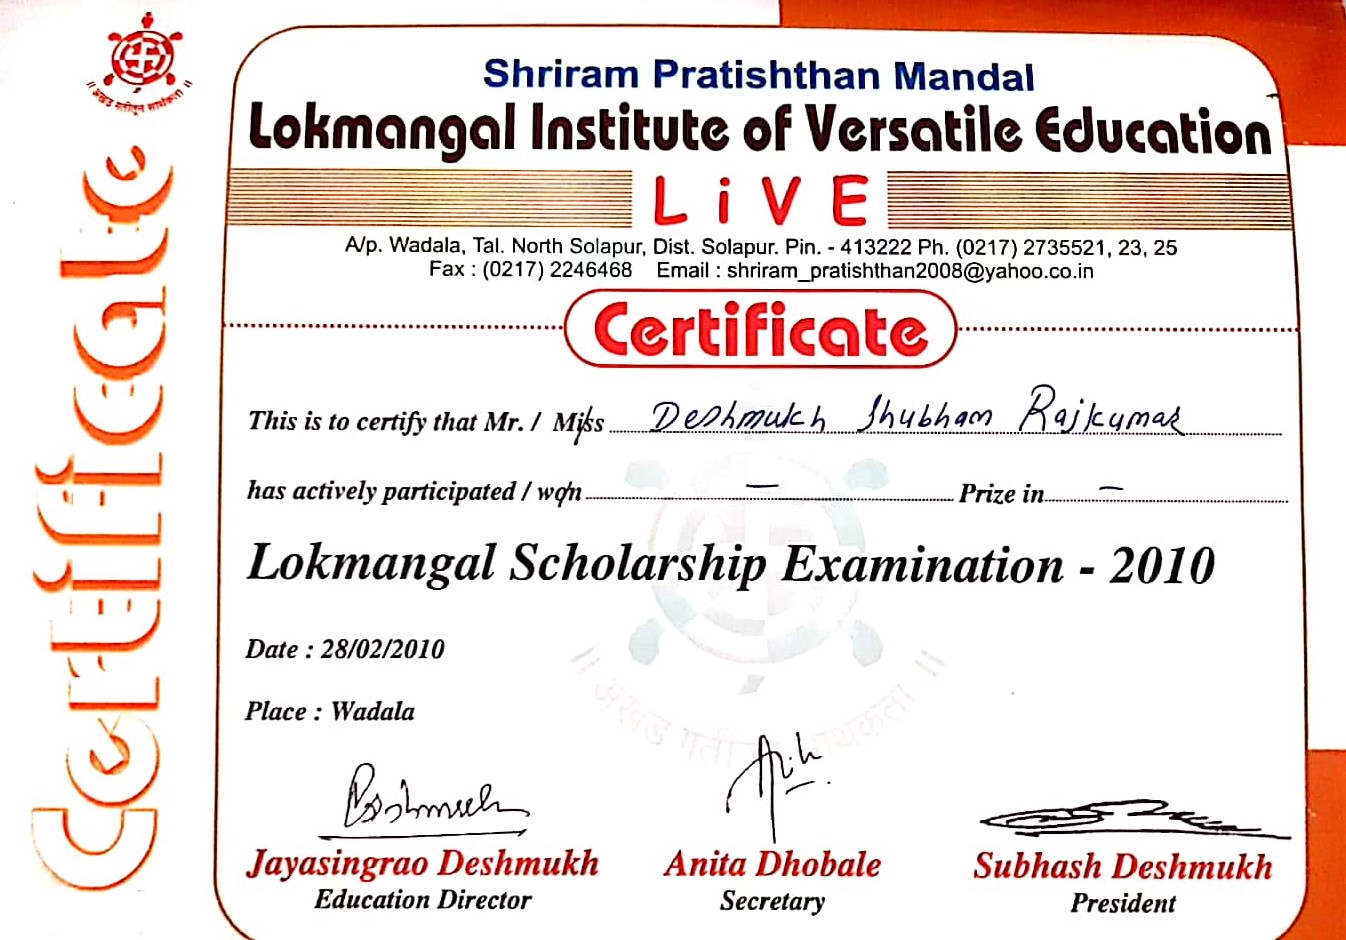 || अखंड गतीतून सार्थकता ||
Certificate
Shriram Pratishthan Mandal
Lokmangal Institute of Versatile Education
LiVE
A/p. Wadala, Tal. North Solapur, Dist. Solapur. Pin. - 413222 Ph. (0217) 2735521, 23, 25
Fax : (0217) 2246468 Email : shriram_pratishthan2008@yahoo.co.in
Certificate
This is to certify that Mr. / Miss Deshmukh Shubham Rajkumar
has actively participated / won — Prize in —
Lokmangal Scholarship Examination - 2010
Date : 28/02/2010
Place : Wadala
Jayasingrao Deshmukh Anita Dhobale Subhash Deshmukh
Education Director Secretary President